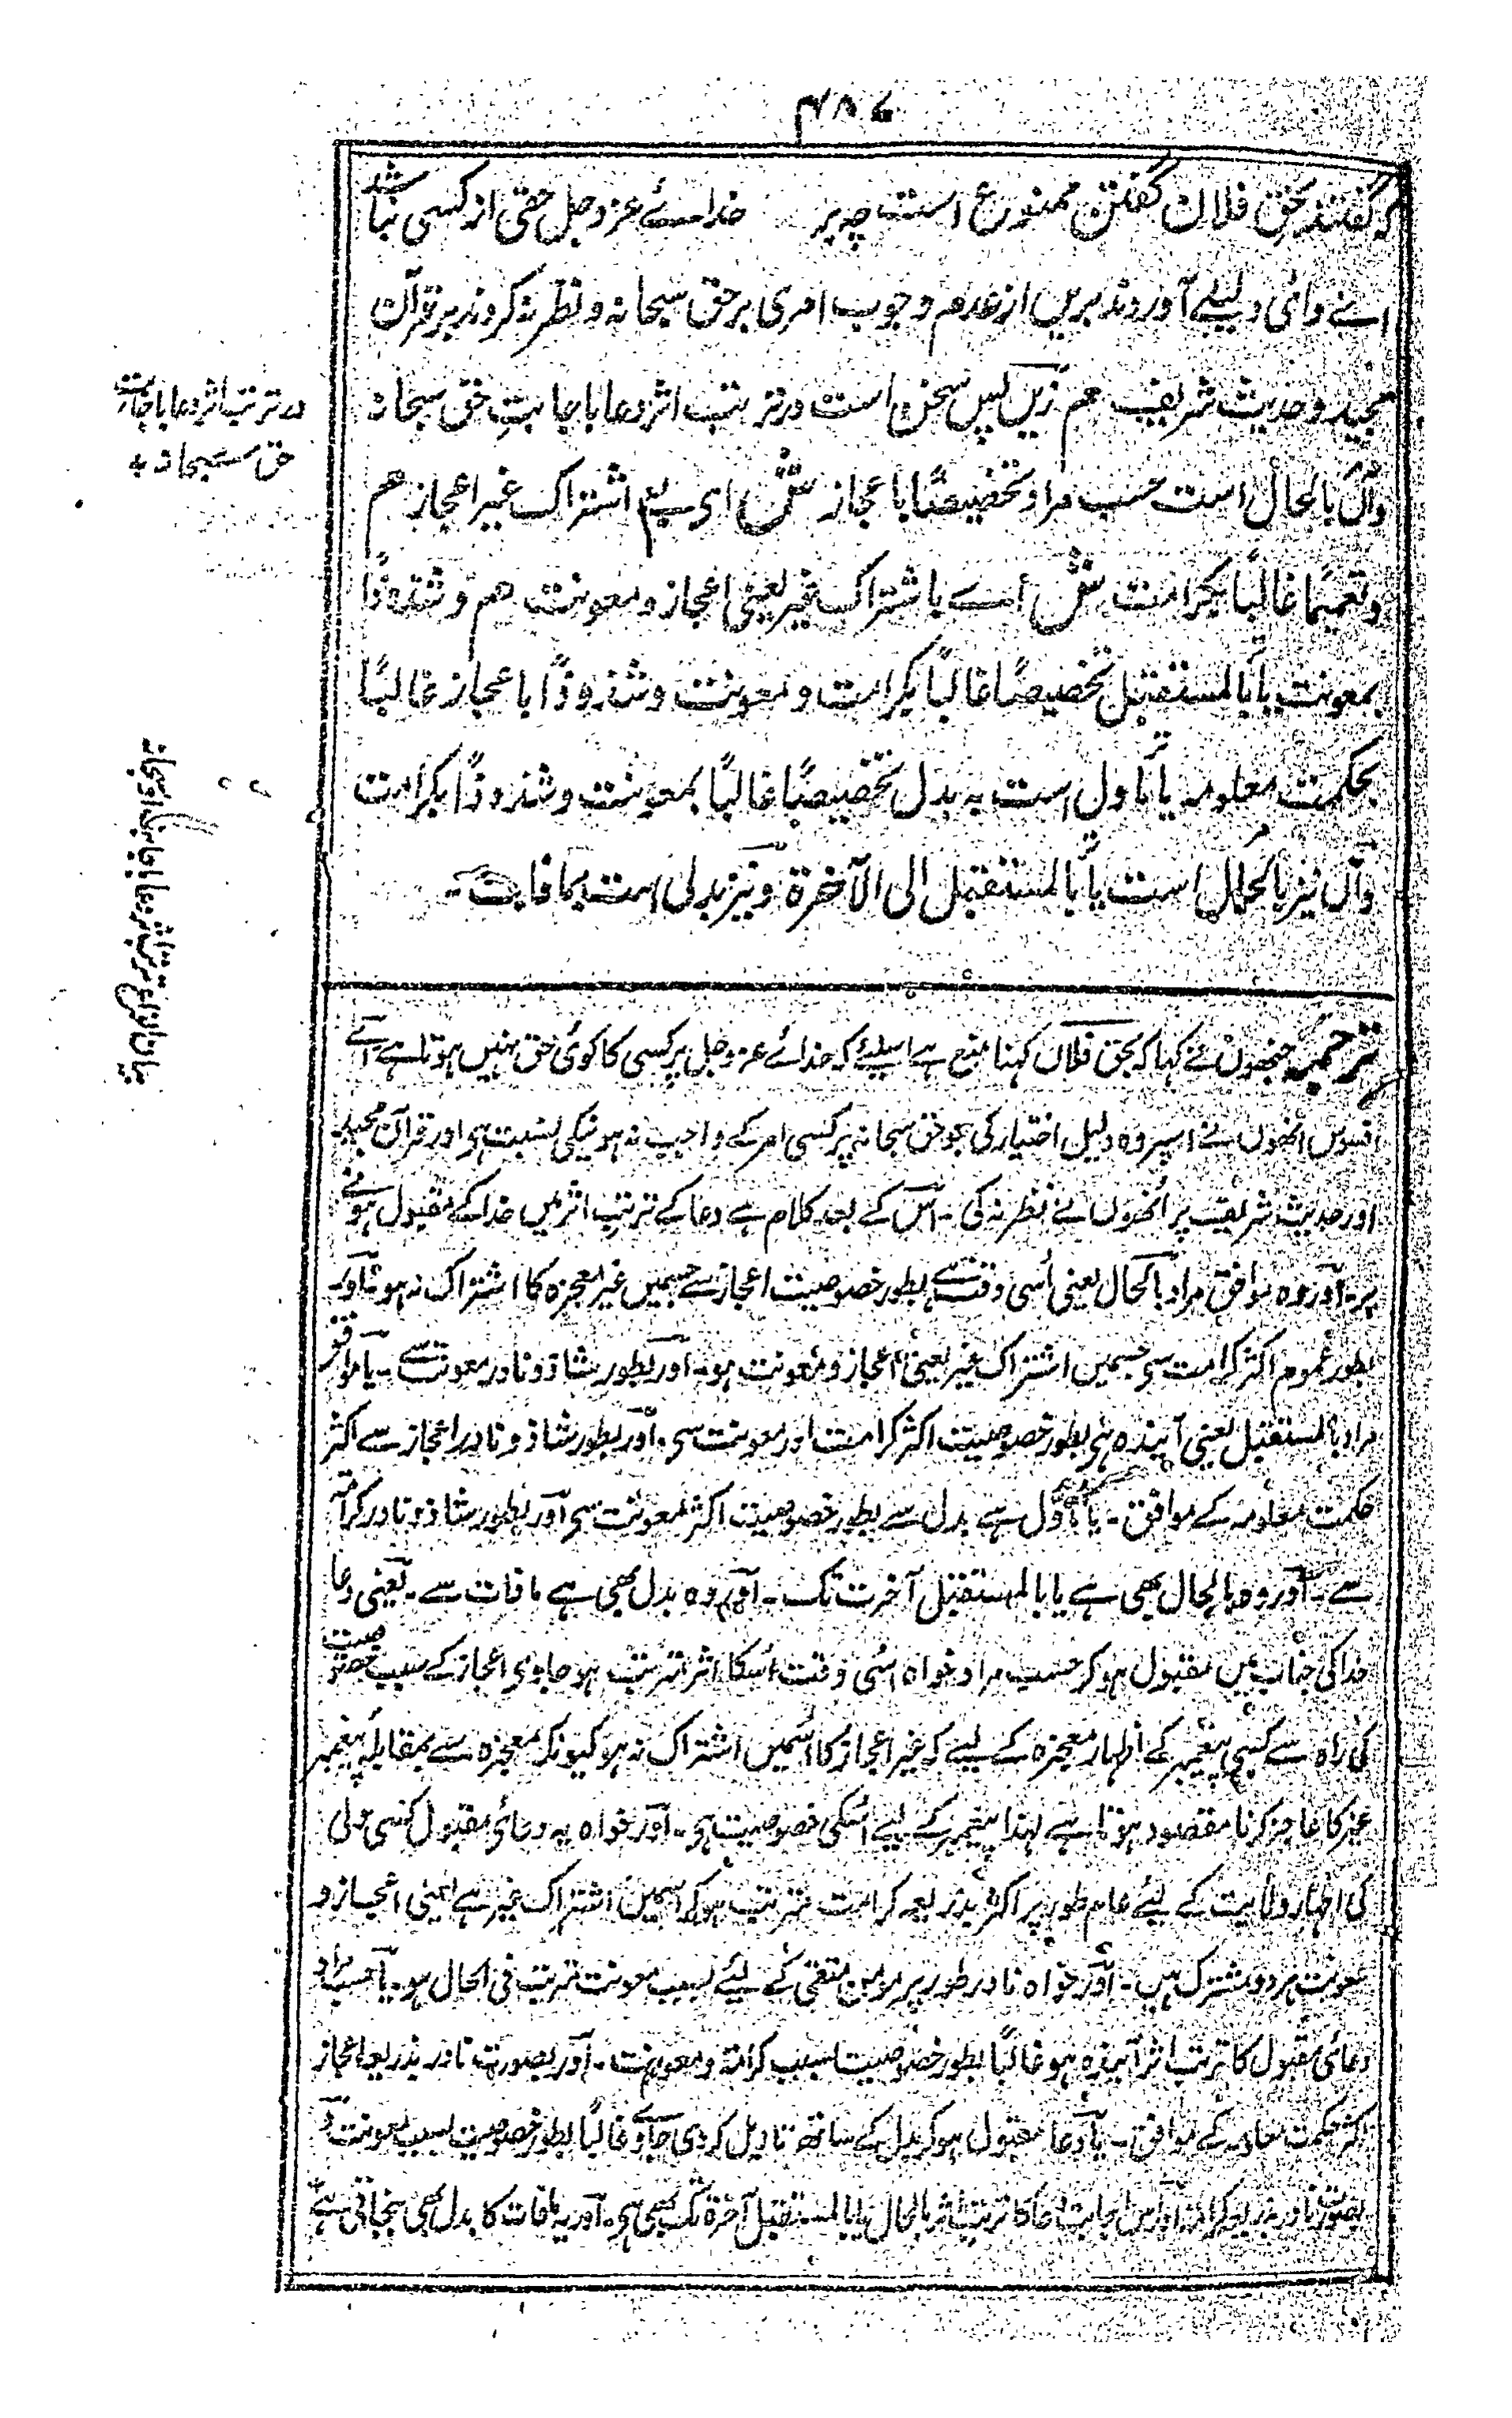 ۴۸۷
کہ گفتند بحق فلان گفتن ممنوع است چہ بر خدائے عز وجل حقی از کسی نباشد
اے وائی دلیلے آوردند برین از عدم وجوب امری بر حق سبحانہ و نظر نہ کردند بر قرآن
مجید و حدیث شریف ھم زین پس سخن است در ترتب اثر دعا با جابتِ حق سبحانہ
وآن بالحال است حسب مراد تخصیصًا با عجاز ش ای بے اشتراک غیر اعجاز ھم
و تعمیمًا غالبًا بکرامت ش اے با شتراک غیر یعنی اعجاز و معونت ھم و شذوذًا
بمعونت یا بالمستقبل تخصیصًا غالبًا بکرامت و معونت و شذوذًا با عجاز غالبًا
بحکمت معلومہ یا تاول است بہ بدل تخصیصًا غالبًا بمعونت و شذوذًا بکرامت
وآن نیز بالحال است یا بالمستقبل الی الآخرة و نیز بدلی است مافات ۔
در ترتب اثر دعا باجابت
حق سبحانہ
ترجمہ جنھون نے کہا کہ بحق فلان کہنا منع ہے اسلیئے کہ خدائے عز وجل پر کسی کا کوئی حق نہین ہوتا ہے اے
افسوس انھون نے اسپر وہ دلیل اختیار کی جو حق سبحانہ پر کسی امر کے واجب نہ ہونیکی نسبت ہو اور قرآن مجید
اور حدیث شریف پر انھون نے نظر نہ کی ۔ اس کے بعد کلام ہے دعا کے ترتب اثر مین خدا کے مقبول ہونے
پر ۔ اور وہ موافق مراد بالحال یعنی اُسی وقت ہے بطور خصوصیت اعجاز سے جسمین غیر معجزہ کا اشتراک نہ ہو ۔ اور
بطور عموم اکثر کرامت سی جسمین اشتراک غیر یعنی اعجاز و معونت ہو ۔ اور بطور شاذ و نادر معونت سے ۔ یا موافق
مراد بالمستقبل یعنی آیندہ ہی بطور خصوصیت اکثر کرامت اور معونت سی ۔ اور بطور شاذ و نادر اعجاز سے اکثر
حکمت معلومہ کے موافق ۔ یا تاوّل ہے بدل سے بطور خصوصیت اکثر معونت سی اور بطور شاذ و نادر کرامت
سے ۔ اور وہ بالحال بھی ہے یا بالمستقبل آخرت تک ۔ اور وہ بدل بھی ہے مافات سے ۔ یعنی دعا
خدا کی جناب مین مقبول ہو کر حسب مراد خواہ اسُی وقت اُسکا اثر مترتب ہو جاوی اعجاز کے سبب خصوصیت
کی راہ سے کسی پیغمبر کے اظہار معجزہ کے لیے کہ غیر اعجاز کا اسمین اشتراک نہ ہو کیونکہ معجزہ سے بمقابلہ پیغمبر
غیر کا عاجز کرنا مقصود ہوتا ہے لہذا پیغمبر کے لیے اسکی خصوصیت ہی ۔ اور خواہ یہ دعائی مقبول کسی ولی
کی اظہار ولایت کے لیئے عام طور پر اکثر بذریعہ کرامت مترتب ہو کہ اسمین اشتراک غیر ہے یعنی اعجاز و
معونت ہر دو مشترک ہین ۔ اور خواہ نادر طور پر مومن متقی کے لیئے بسبب معونت مترتب فی الحال ہو ۔ یا حسب مراد
دعائی مقبول کا ترتب اثر آیندہ ہو غالبًا بطور خصوصیت بسبب کرامت و معونت ۔ اور بصورت نادر بذریعہ اعجاز
اکثر حکمت معلومہ کے موافق ۔ یا دعا مقبول ہو کر بدل کے ساتھ تاویل کر دی جاوے غالبًا بطور خصوصیت بسبب معونت و
بصورت نادر بذریعہ کرامت اور اس اجابت دعا کا ترتب اثر بالحال یا بالمستقبل آخرة تک بھی ہی ۔ اور یہ مافات کا بدل بھی ہے